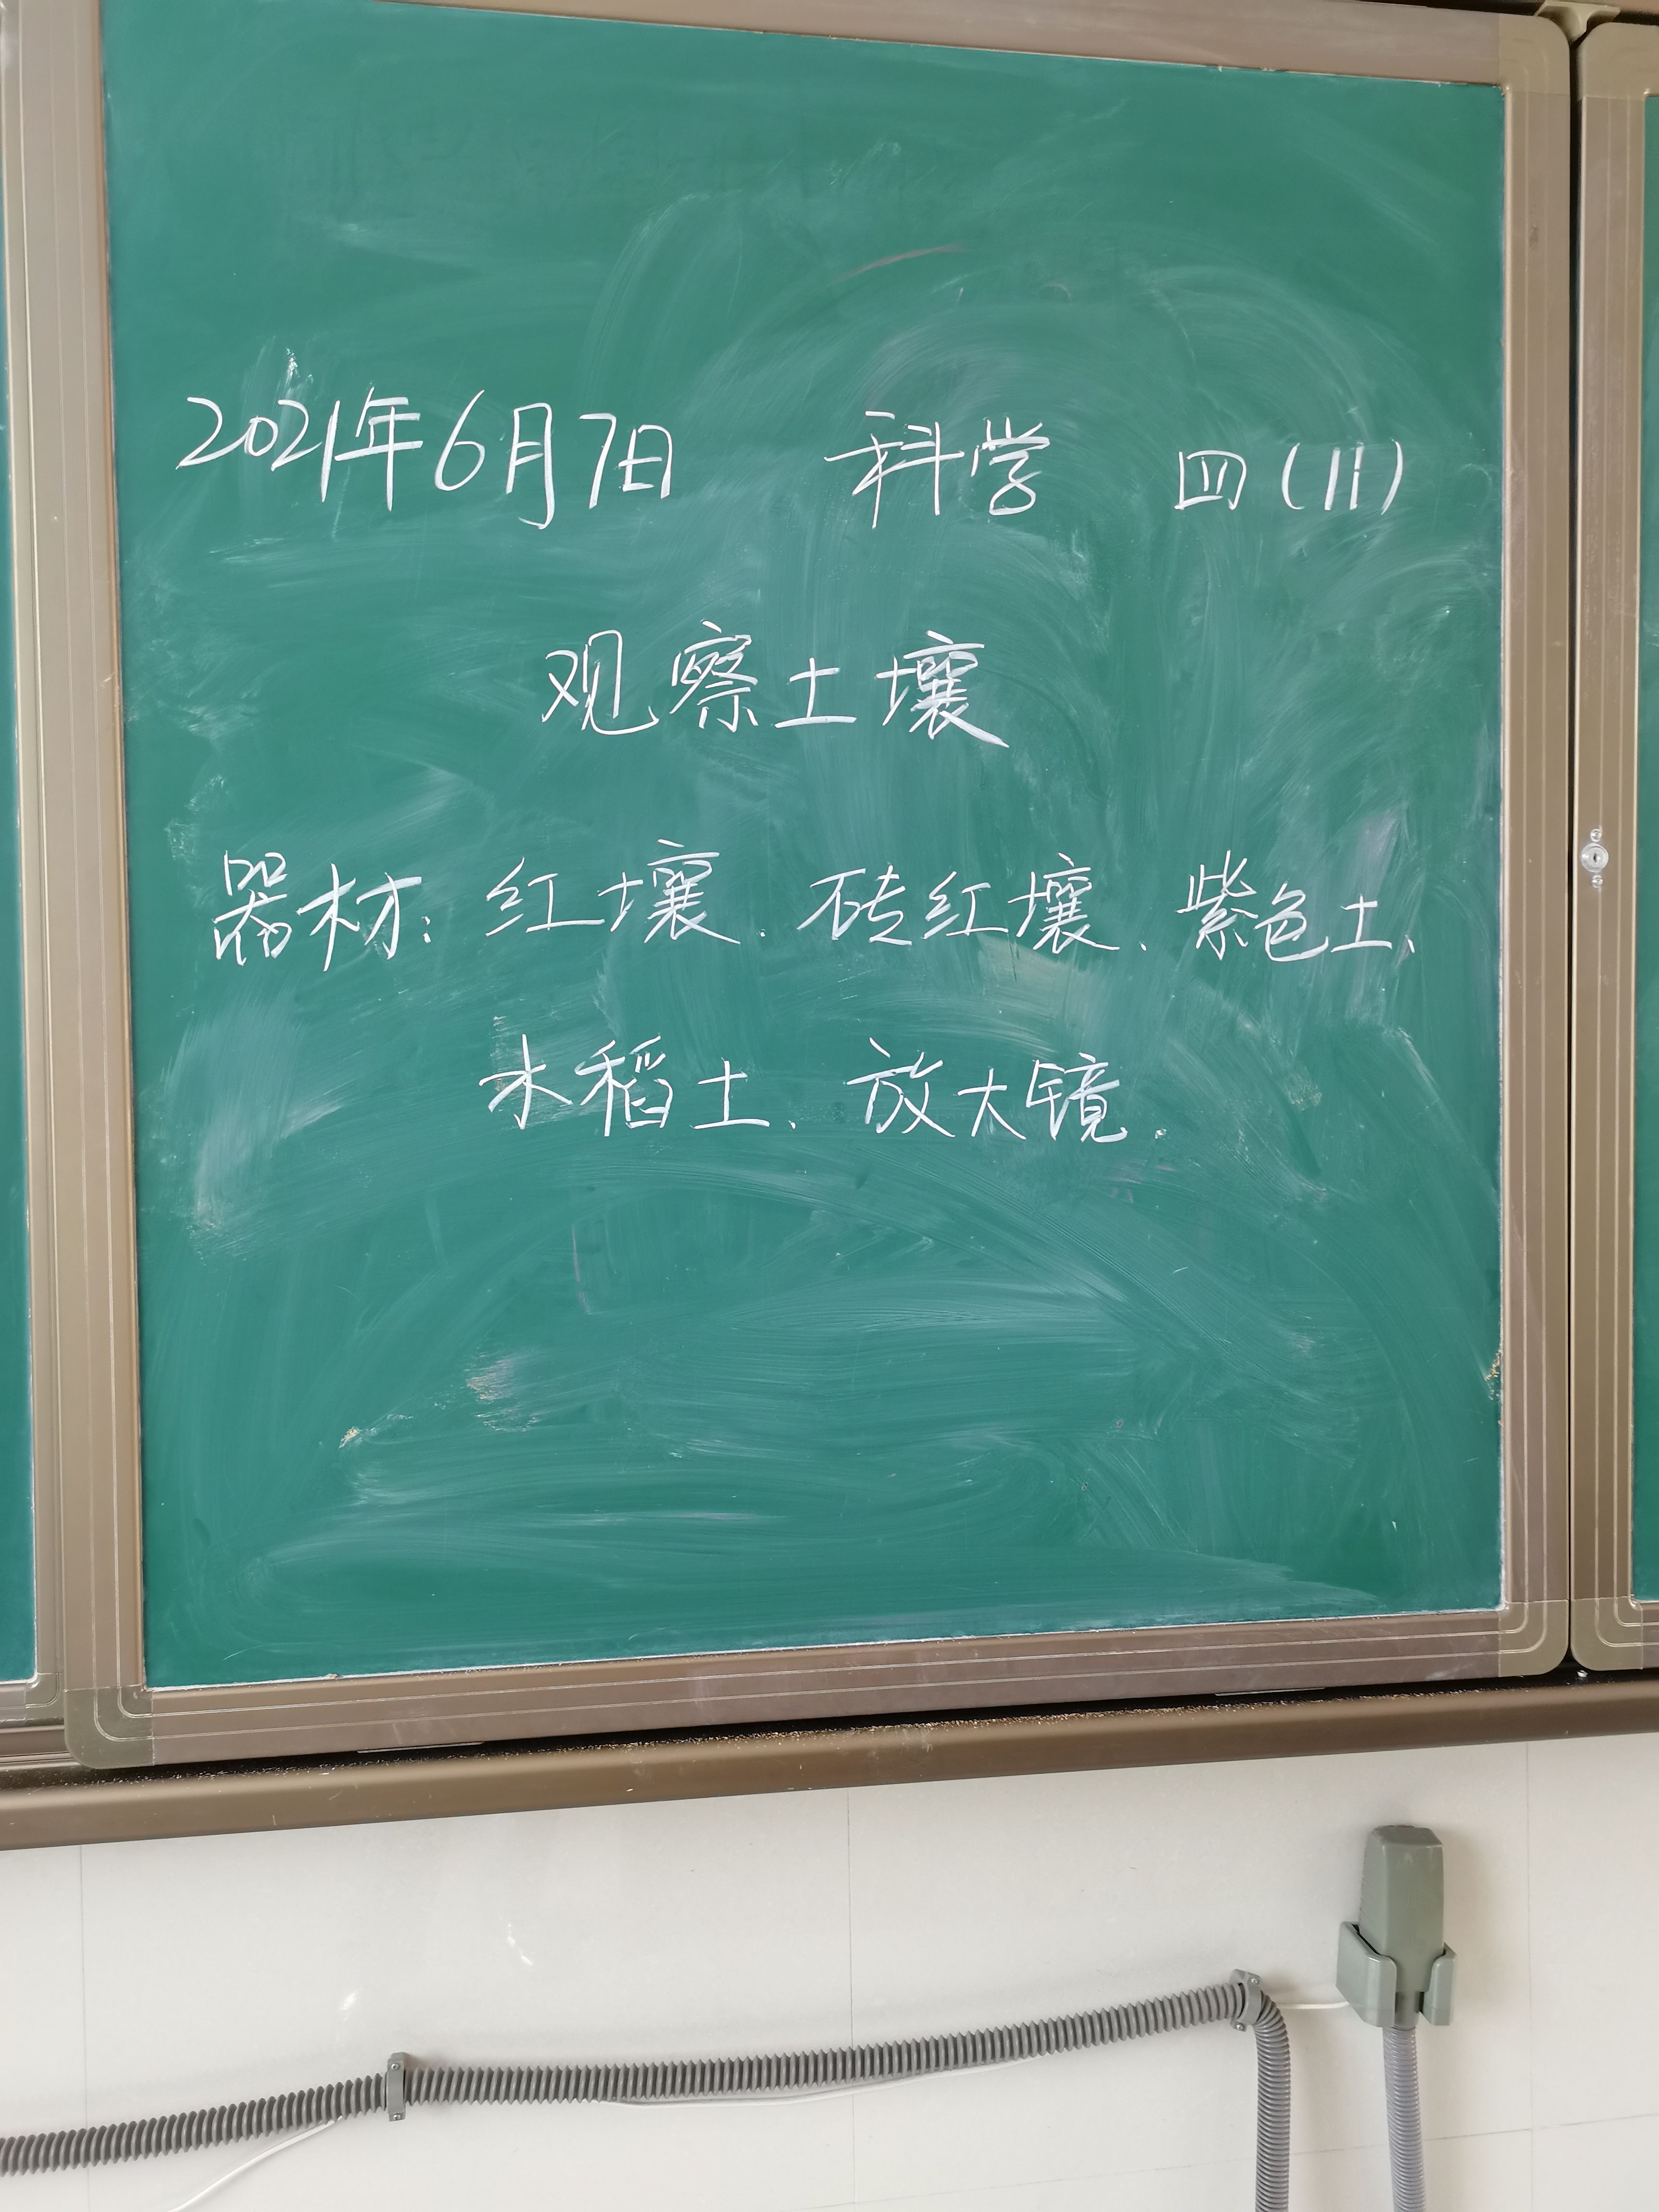 2021年6月7日 科学 四(11)
观察土壤
器材：红壤、砖红壤、紫色土、
水稻土、放大镜.